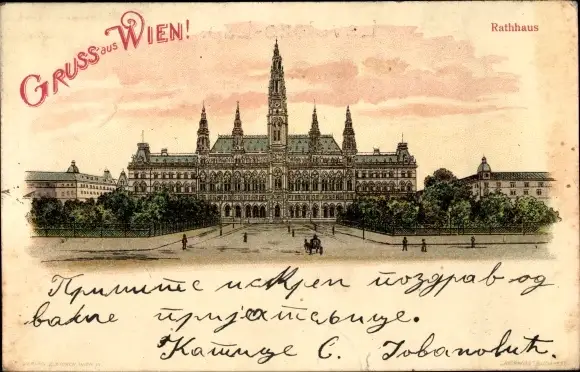 Gruss aus Wien!
Rathhaus
Примите искрен поздрав од
ваше пријатељице.
Катице С. Јовановић.